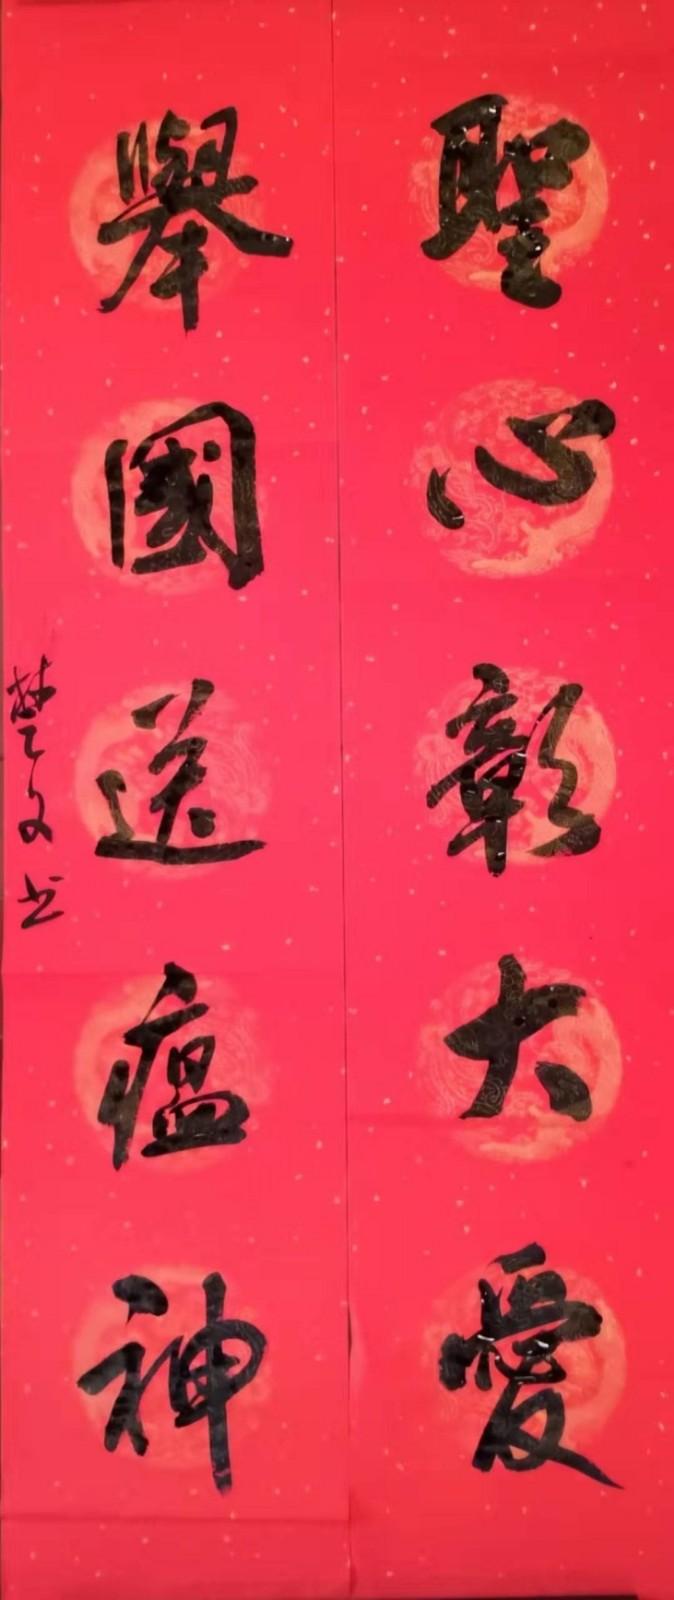 聖心彰大愛
舉國送瘟神
楚文书